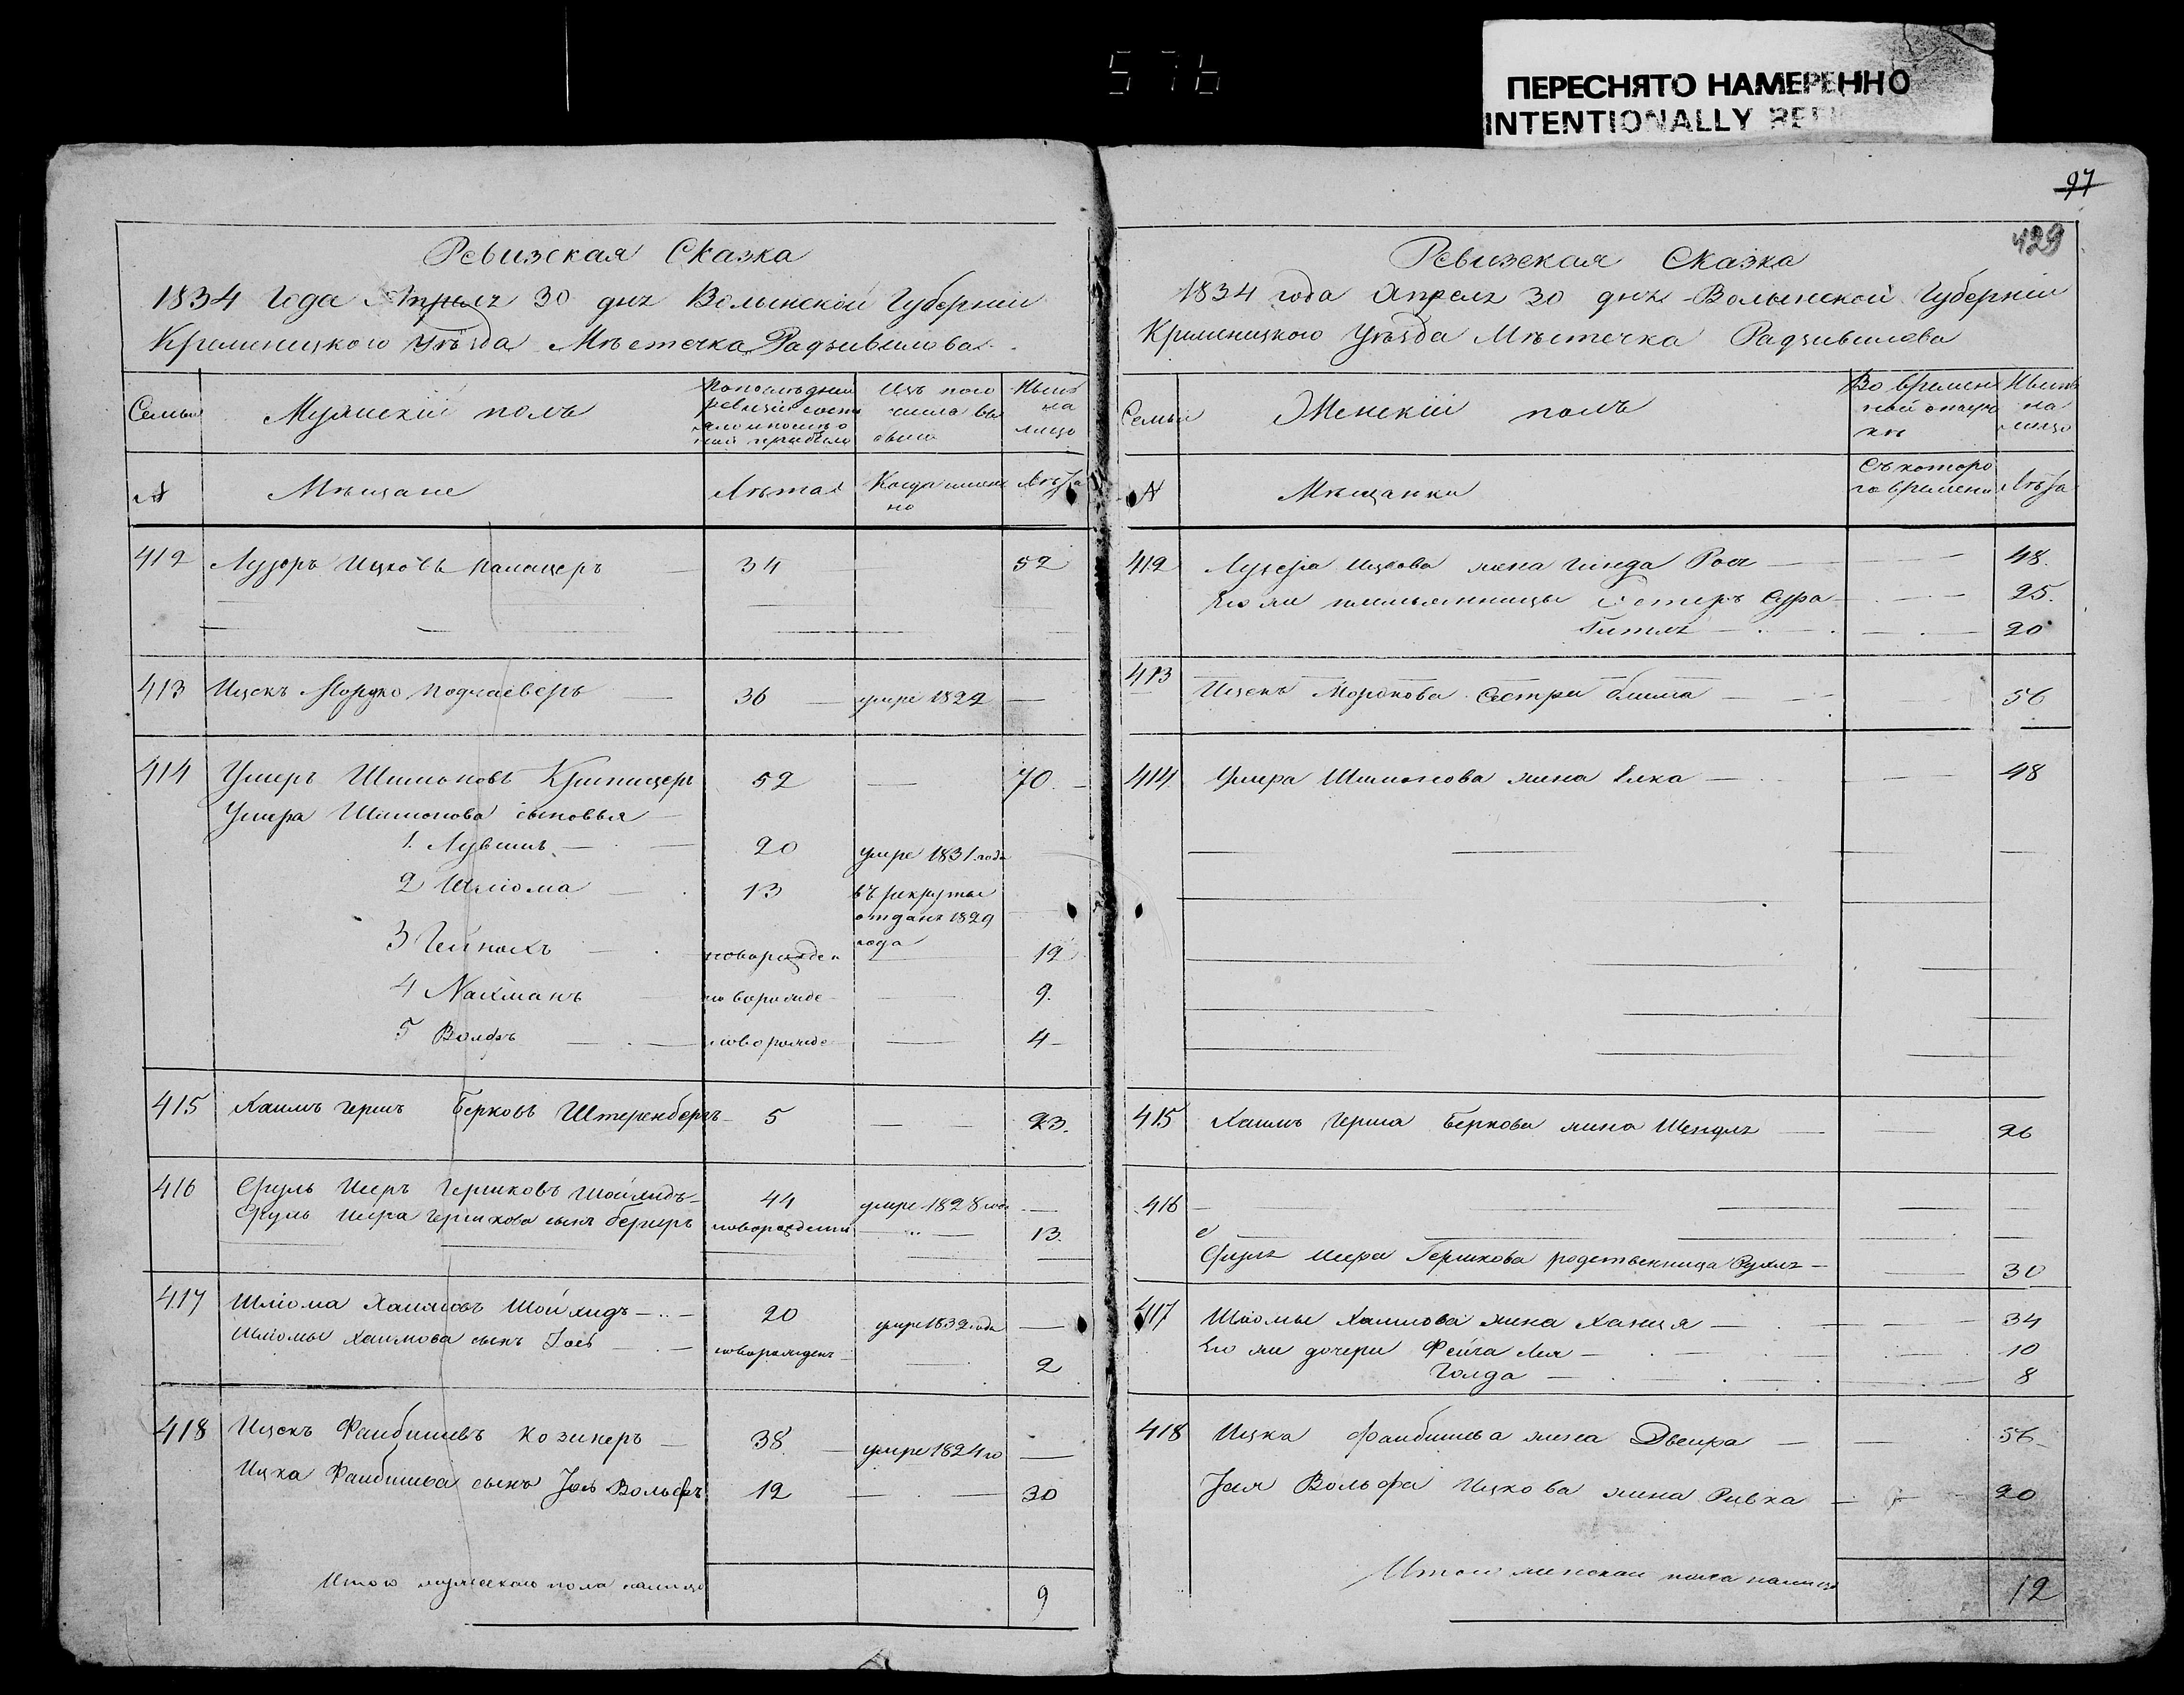 576
ПЕРЕСНЯТО НАМЕРЕННО
INTENTIONALLY
97
429
Ревизская Сказка
1834 Года Апреля 30 дня Волынской Губерніи
Кременецкого Уѣзда Мѣстечка Радзивилова
Семьи
Мужскій полъ
По последней ревизіи состояло и после оной прибыло
Изъ того числа выбыло
Нынѣ на лицо
№
Мѣщане
Лѣта
Когда именно
Лѣта
412 Лузоръ Ицковъ 34 52
413 Ицекъ Мордко Подчаеверъ 36 умре 1824
414 Умеръ Шимоновъ Криницеръ 52 70
Умера Шимонова сыновья
1. Лувишъ 20 умре 1831 года
2 Шліома 13 въ рекруты отданъ 1829 года
3 Гейнохъ новорожден 12
4 Нахманъ новорожде 9.
5 Волфъ новорожде 4
415 Хаимъ Гершъ Берковъ Штеренбергъ 5 23.
416 Сруль Мееръ Гершковъ Шойхидъ 44 умре 1828 года
Сруль Меера Гершкова сынъ Бериръ новорожденъ 13.
417 Шліома Хаимовъ Шойхидъ 20 умре 1832 года
Шліомы Хаимова сынъ Іось новорожденъ 2
418 Ицекъ Фаибишевъ Козинеръ 38 умре 1824 го
Ицка Фаибишева сынъ Іось Вольфъ 12 30
Итого мужескаго пола налицо 9
Ревизская Сказка
1834 года Апреля 30 дня Волынской Губерніи
Кременицкого Уѣзда Мѣстечка Радзивилова
Семьи
Женскій полъ
Во временной отлучкѣ
Нынѣ на лицо
№
Мѣщанки
Съ которого времени
Лѣта
412 Лузера Ицкова жена Гинда Роса 48.
Его же племянницы Естеръ Сура 25.
Гитля 20
413 Ицекъ Мордкова Сестра Блима 56
414 Умера Шимонова жена Елка 48
415 Хаимъ Герша Беркова жена Шендля 26
416
Сруля Меера Гершкова родственница Рухля 30
417 Шліомы Хаимова жена Ханця 34
Его же дочери Фейга Лея 10
Голда 8
418 Ицка Фаибишева жена Двейра 56
Іося Вольфа Ицкова жена Ривка 20
Итого женскаго пола налицо 12